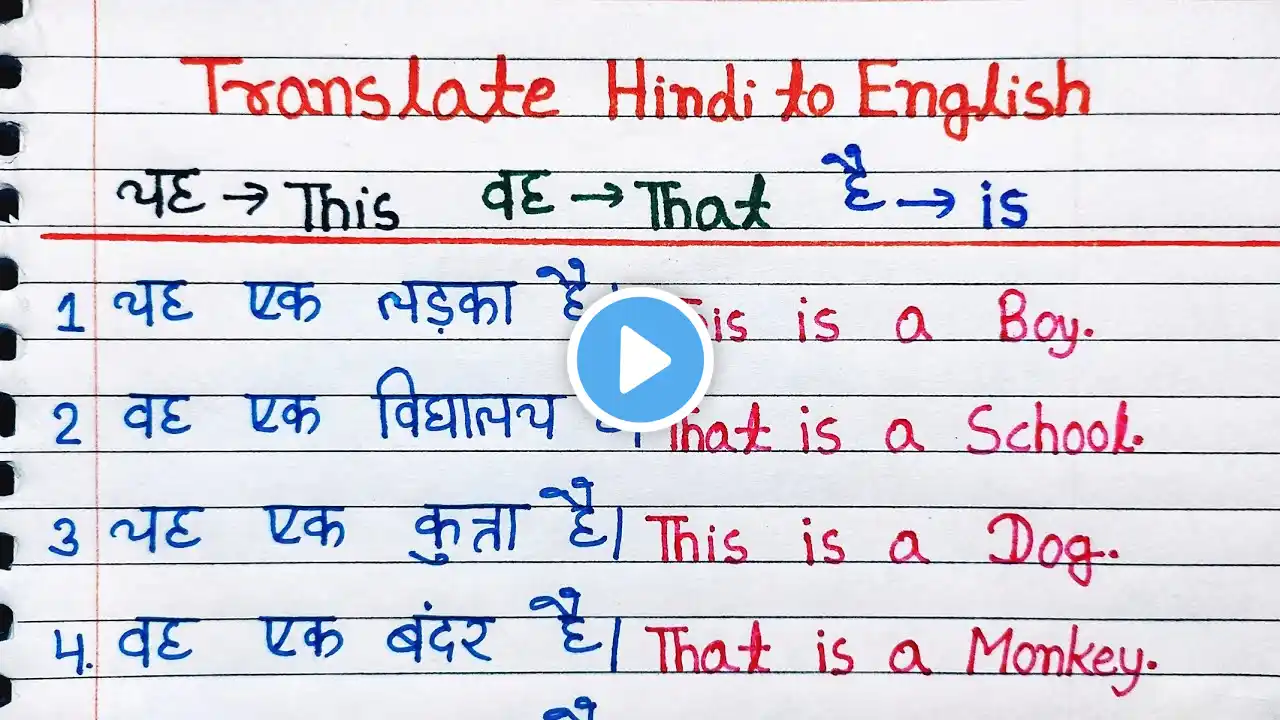 Translate Hindi to English
यह → This वह → That है → is
1 यह एक लड़का है। is is a Boy.
2 वह एक विद्यालय That is a School.
3 यह एक कुत्ता है। This is a Dog.
4. वह एक बंदर है। That is a Monkey.